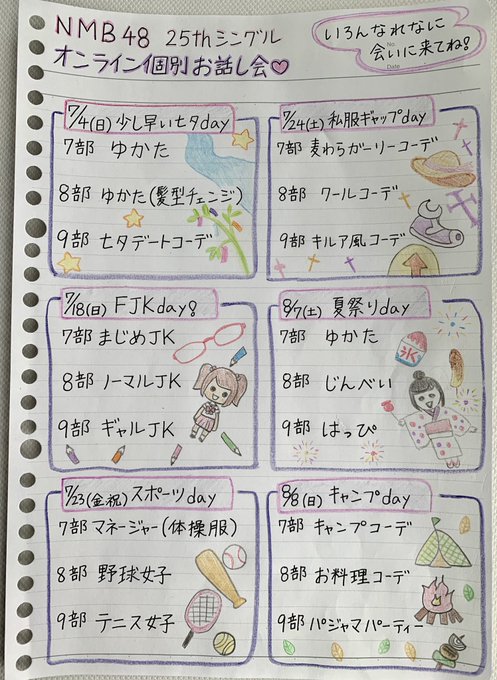 NMB48 25thシングル
オンライン個別お話し会♡
いろんなれなに
会いに来てね!
No.
Date
7/4(日)少し早い七夕day
7部 ゆかた
8部 ゆかた(髪型チェンジ)
9部 七夕デートコーデ
7/24(土)私服ギャップday
7部 麦わらガーリーコーデ
8部 クールコーデ
9部 キルア風コーデ
7/18(日) FJKday!
7部 まじめJK
8部 ノーマルJK
9部 ギャルJK
8/7(土) 夏祭りday
7部 ゆかた
8部 じんべい
9部 はっぴ
氷
7/23(金祝)スポーツday
7部 マネージャー(体操服)
8部 野球女子
9部 テニス女子
8/8(日) キャンプday
7部 キャンプコーデ
8部 お料理コーデ
9部 パジャマパーティー